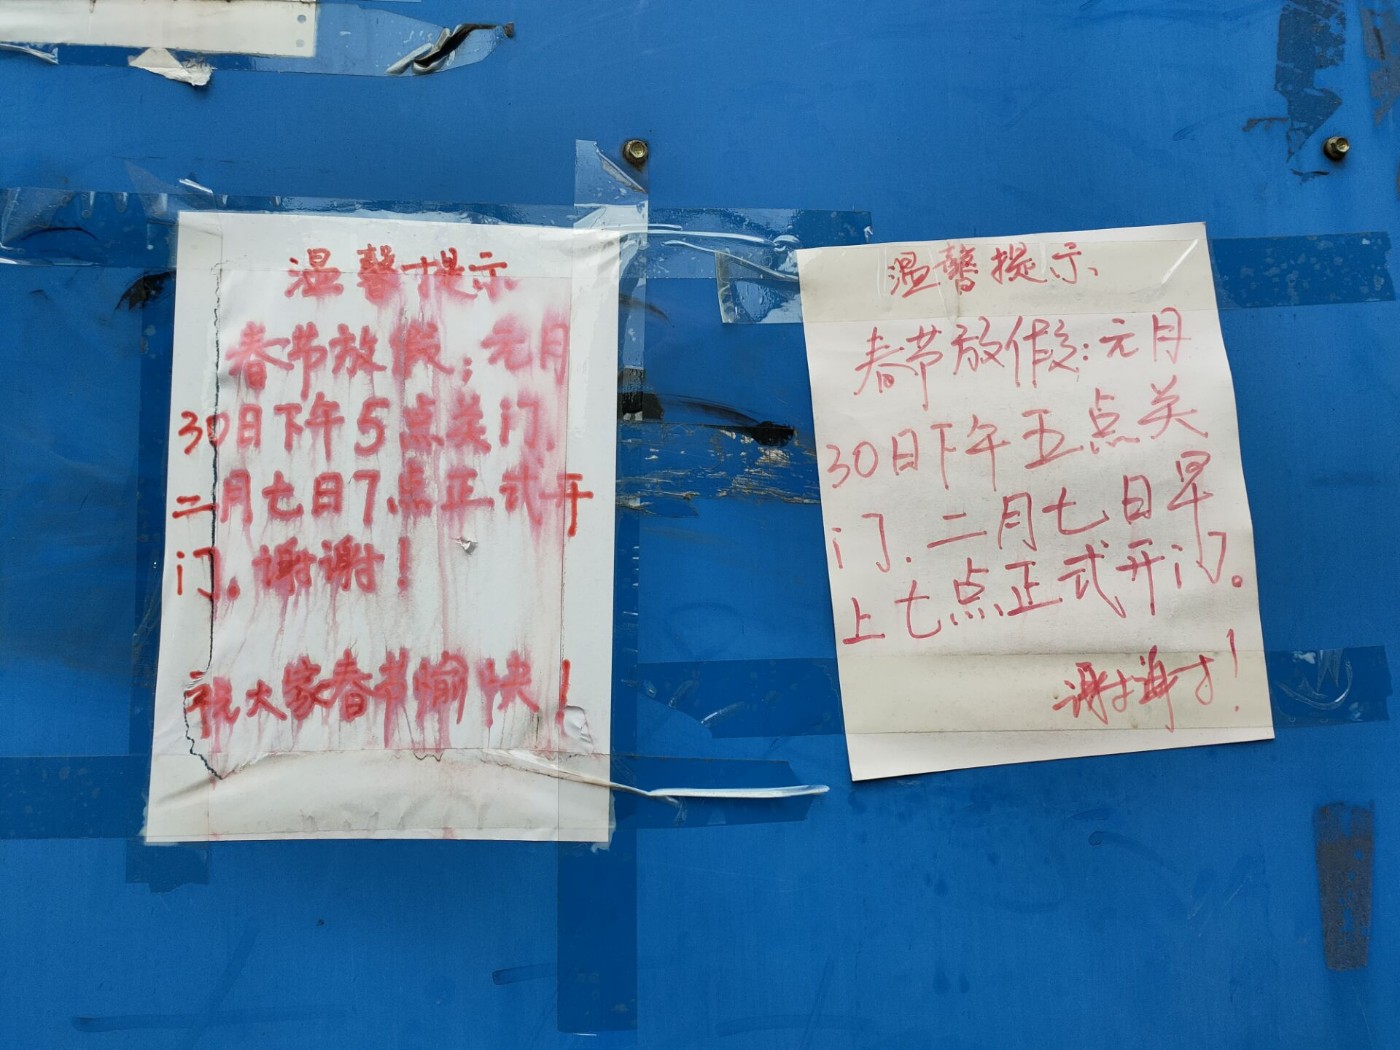 温馨提示
春节放假；元月
30日下午5点关门.
二月七日7点正式开
门。谢谢！
祝大家春节愉快！
温馨提示
春节放假：元月
30日下午五点关
门.二月七日早
上七点正式开门。
谢谢！